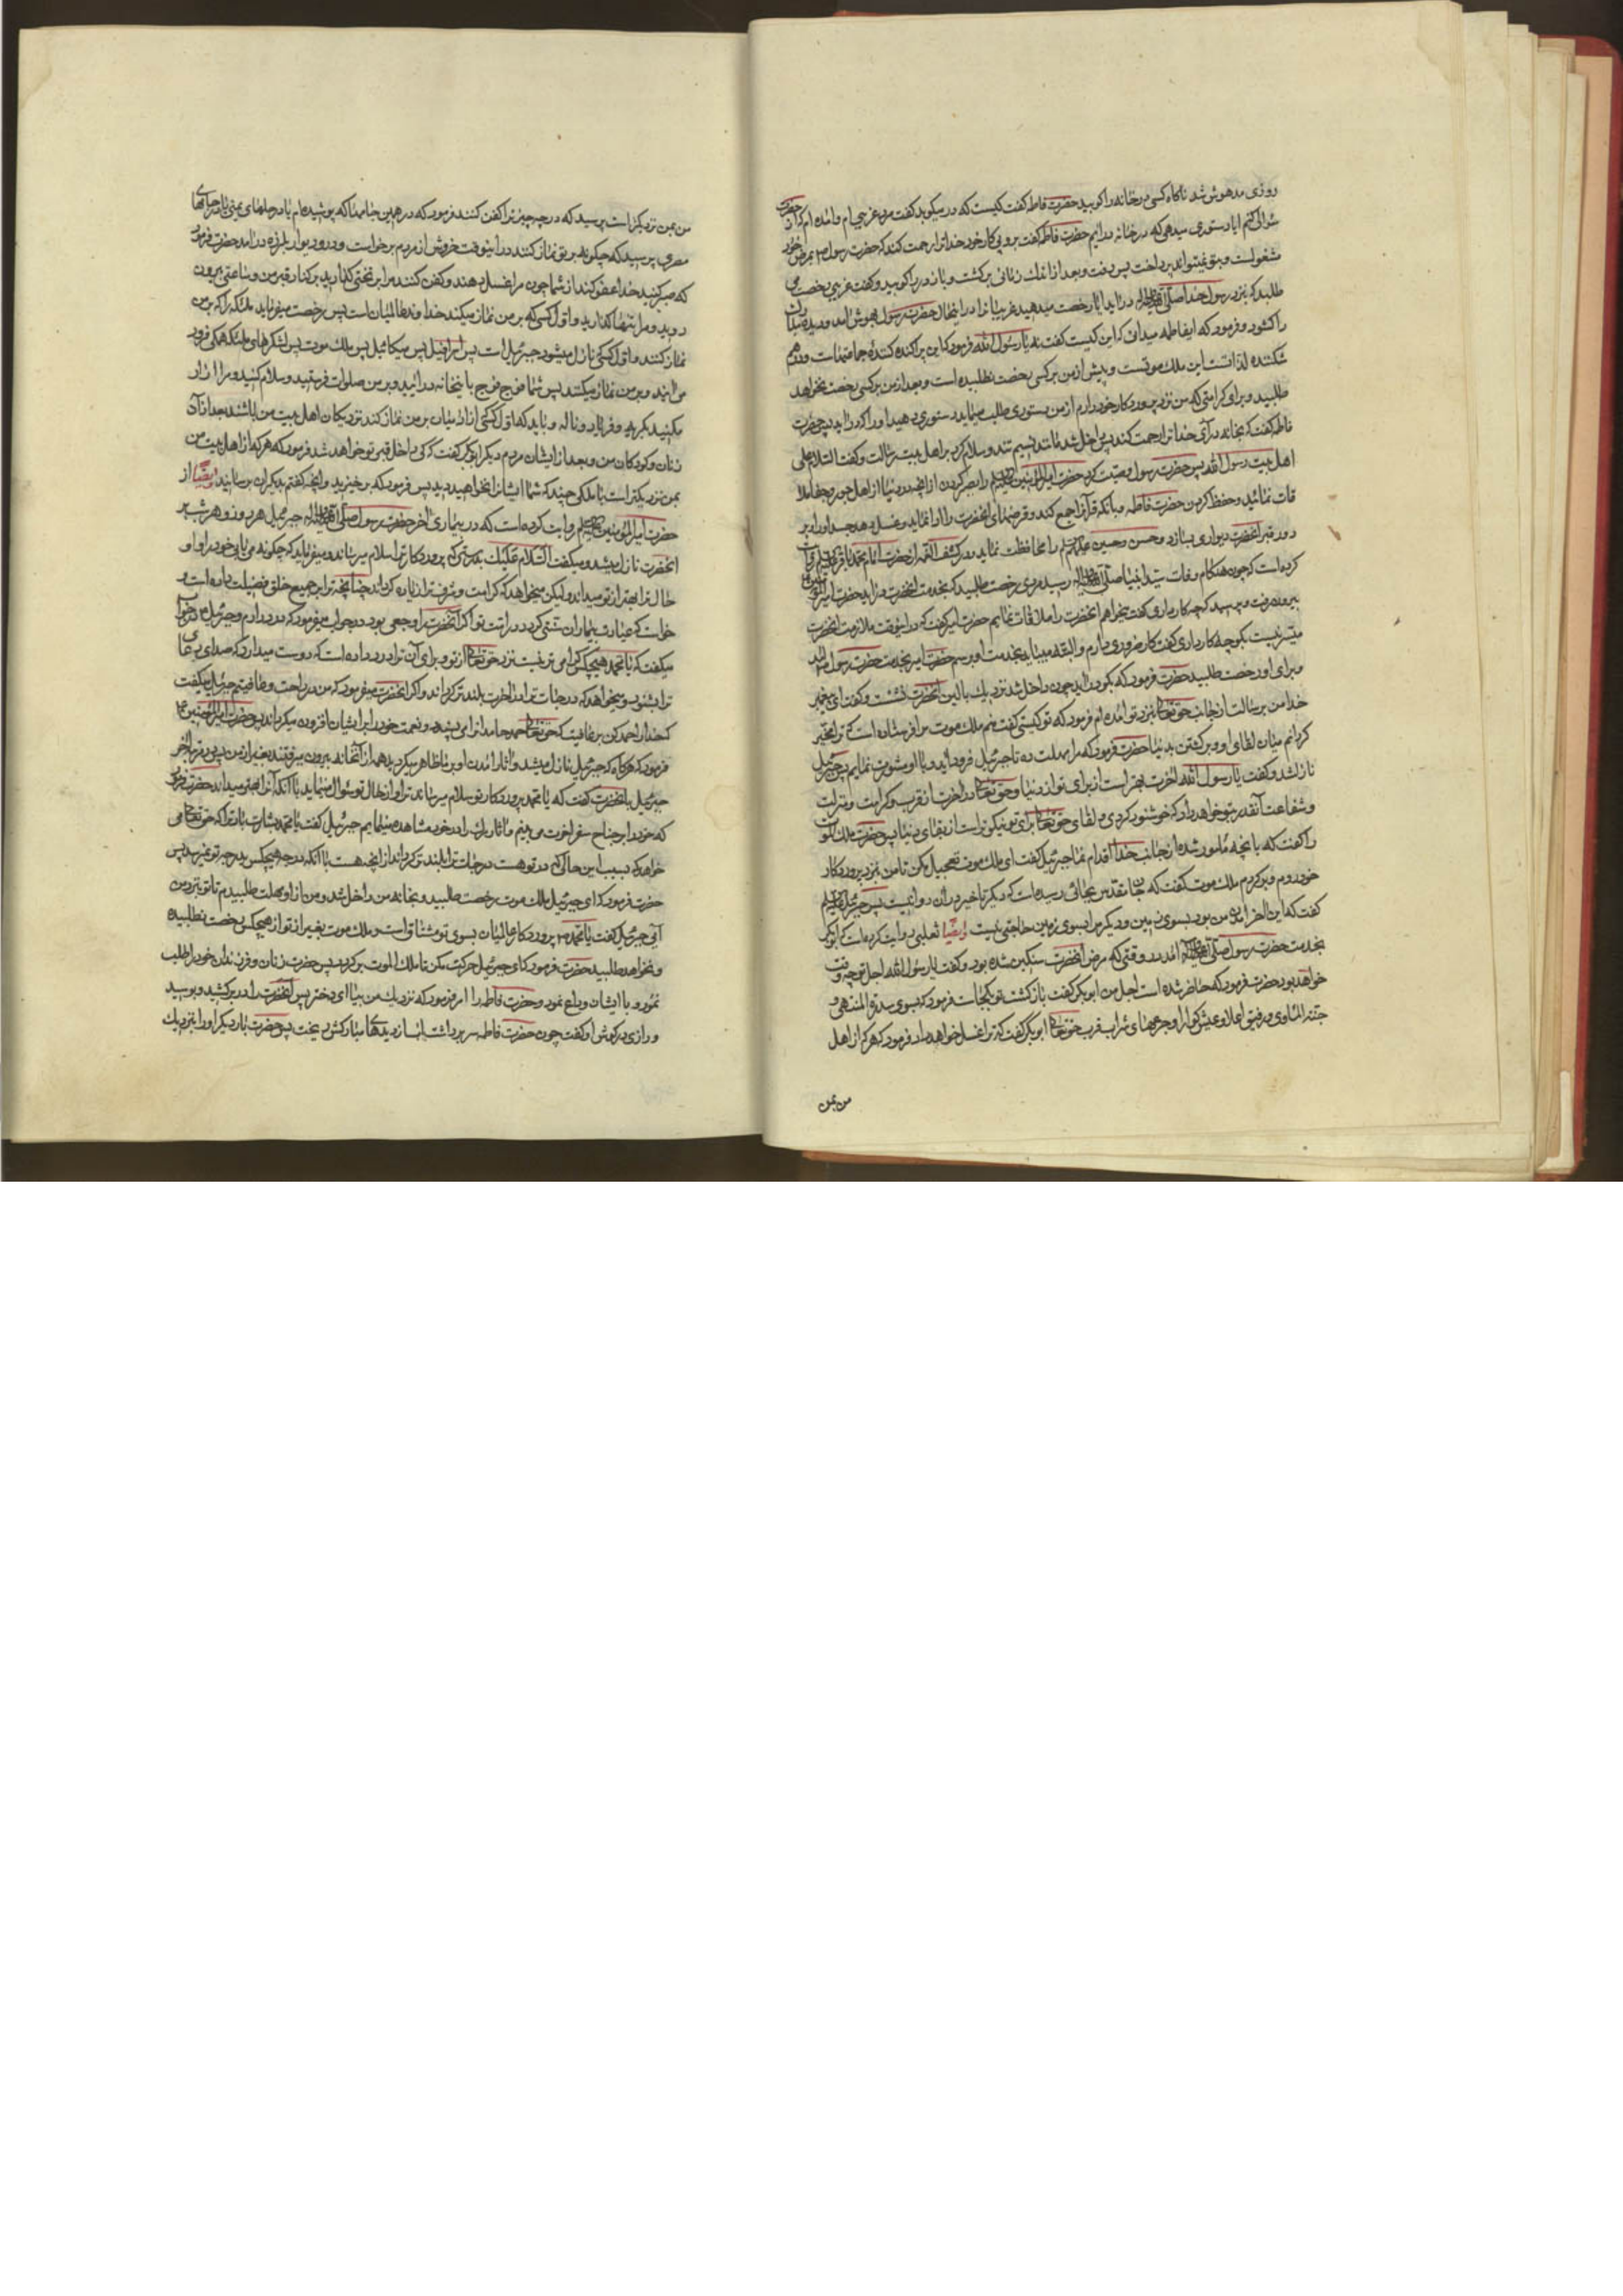 روزی مدهوش شد ناکاه کسی در خانه را کوبید حضرت فاطمه کفت کیست که در میکوبد کفت مرد غریبی ام و امده ام که از حضرت
سؤالی کنم ایا دستوری میدهی که در خانه درایم حضرت فاطمه کفت برو پی کار خود خدا ترا رحمت کند که حضرت رسول ص بمرض خود
مشغولست و بتو نمیتواند پرداخت پس رفت و بعد از اندك زمانی برکشت و باز در را کوبید و کفت غریبی رخصت می
طلبد که بنزد رسول خدا صلی الله علیه واله درآید ایا رخصت میدهید غریبانرا در اینحال حضرت رسول بهوش امد و دیده مبارك
را کشود و فرمود که ایفاطمه میدانی که این کیست کفت نه یا رسول الله فرمود که این پراکنده کننده جماعتهاست و درهم
شکننده لذاتست این ملك موتست و پیش از من بر کسی رخصت نطلبیده است و بعد از من بر کسی رخصت نخواهد
طلبید و برای کرامتی که من نزد پروردکار خود دارم از من دستوری طلب مینماید دستوری دهید او را که درآید پس حضرت
فاطمه کفت که بخانه درآی خدا ترا رحمت کند پس داخل شد مانند نسیم تند و سلام کرد بر اهل بیت رسالت و کفت السلام علی
اهل بیت رسول الله پس حضرت رسول وصیت کرد حضرت امیرالمؤمنین را بصبر کردن از انچه در دنیا از اهل جور و جفا ملا
قات نماید و حفظ کردن حضرت فاطمه و بانکه قرآنرا جمع کند و قرضهای انحضرت را ادا نماید و غسل دهد جسد او را و بر
دور قبر انحضرت دیواری بسازد و حسن و حسین علیهم السلام را محافظت نماید و در کشف الغمه از حضرت امام محمد باقر روایت
کرده است که چون هنکام وفات سید انبیا صلی الله علیه واله رسید مردی رخصت طلبید که بخدمت انحضرت درآید حضرت امیرالمؤمنین
بیرون رفت و پرسید که چه کار داری کفت میخواهم انحضرت را ملاقات نمایم حضرت امیر کفت که در اینوقت ملازمت انحضرت
میسر نیست بکو چه کار داری کفت کار ضروری دارم و البته میباید بخدمت او برسم حضرت امیر بخدمت حضرت رسول امد
و برای او رخصت طلبید حضرت فرمود که بکو درآید چون داخل شد نزدیك بالین انحضرت نشست و کفت ای پیغمبر
خدا من برسالت از جانب حقتعالی بنزد تو امده ام فرمود که تو کیستی کفت منم ملك موت مرا فرستاده است که ترا مخیر
کردانم میان لقای او و برکشتن بدنیا حضرت فرمود که مرا مهلت ده تا جبرئیل فرود آید و با او مشورت نمایم پس جبرئیل
نازل شد و کفت یا رسول الله اخرت بهتر است از برای تو از دنیا و حقتعالی در اخرت از قرب و کرامت و منزلت
و شفاعت آنقدر بتو خواهد داد که خوشنود کردی و لقای حقتعالی برای تو نیکوتر است از بقای دنیا پس حضرت ملك موت
را کفت که بانچه مأمور شده از جانب خدا اقدام نما جبرئیل کفت ای ملك موت تعجیل مکن تا من بنزد پروردکار
خود روم و برکردم ملك موت کفت که جان مقدس بجائی رسیده است که دیکر تاخیر در ان روا نیست پس جبرئیل
کفت که این اخر امدن من بود بسوی زمین و دیکر مرا بسوی زمین حاجتی نیست و ایضا ثعلبی روایت کرده است که ابوبکر
بخدمت حضرت رسول صلی الله علیه واله امد در وقتی که مرض انحضرت سنکین شده بود و کفت یا رسول الله اجل تو چه وقت
خواهد بود حضرت فرمود که حاضر شده است اجل من ابوبکر کفت بازکشت تو بکجاست فرمود که بسوی سدرة المنتهی و
جنة الماوی و رفیق اعلا و عیش کوارا و جرعهای شراب قرب حقتعالی ابوبکر کفت که ترا غسل خواهد داد فرمود که هر که از اهل
من بمن
من بمن نزدیکتر است پرسید که در چه چیز ترا کفن کنند فرمود که در همین جامها که پوشیده ام یا در حلهای یمنی یا در جامهای
مصری پرسید که چکونه بر تو نماز کنند در اینوقت خروش از مردم برخواست و در و دیوار بلرزه درامد حضرت فرمود
که صبر کنید خدا عفو کند از شما چون مرا غسل دهند و کفن کنند مرا بر تختی کذارید بر کنار قبر من و ساعتی بیرون
روید و مرا تنها کذارید و اول کسی که بر من نماز میکند خداوند عالمیان است پس رخصت میفرماید ملائکه را که بر من
نماز کنند و اول کسی که نازل میشود جبرئیل است پس اسرافیل پس میکائیل پس ملك موت پس لشکرهای ملائکه همکی فرود
می ایند و بر من نماز میکنند پس شما فوج فوج باینخانه درائید و بر من صلوات فرستید و سلام کنید و مرا ازار
مکنید بکریه و فریاد و ناله و باید که اول کسی از ادمیان بر من نماز کند نزدیکان اهل بیت من باشند بعد از آن
زنان و کودکان من و بعد از ایشان مردم دیکر ابوبکر کفت که کی داخل قبر تو خواهد شد فرمود که هر که از اهل بیت من
بمن نزدیکتر است با ملکی چند که شما ایشانرا نخواهید دید پس فرمود که برخیزید و انچه کفتم بدیکران برسانید و ایضا از
حضرت امیرالمؤمنین روایت کرده است که در بیماری اخر حضرت رسول صلی الله علیه واله جبرئیل هر روز و هر شب بر
انحضرت نازل میشد و میکفت السلام علیك بدرستی که پروردکار ترا سلام میرساند و میفرماید که چکونه می یابی خود را و او
حال ترا بهتر از تو میداند و لیکن میخواهد که کرامت و شرف ترا زیاده کرداند چنانچه ترا بر جمیع خلق فضیلت داده است و
خواست که عیادت بیماران سنتی کردد در امت تو اکر انحضرت را وجعی بود در جواب میفرمود که درد دارم و جبرئیل در جواب
میکفت که یا محمد هیچکس کرامی تر نیست نزد حقتعالی از تو و برای آن ترا درد داده است که دوست میدارد که صدای دعای
ترا بشنود و میخواهد که درجات ترا در اخرت بلند تر کرداند و اکر انحضرت میفرمود که من در راحت و عافیتم جبرئیل میکفت
که خدا را حمد کن بر عافیت که حقتعالی حمد حامدانرا می پسندد و نعمت خود را بر ایشان افزون میکرداند پس حضرت امیرالمؤمنین
فرمود که هرکاه که جبرئیل نازل میشد و اثار امدن او بر ما ظاهر میکردید همه از انخانه بیرون میرفتند بغیر از من پس در مرتبه اخر
جبرئیل بانحضرت کفت که یا محمد پروردکار تو سلام میرساند ترا و از حال تو سؤال مینماید با آنکه آنرا بهتر میداند حضرت فرمود
که خود را بر جناح سفر اخرت می بینم و اثار مرك را در خود مشاهده مینمایم جبرئیل کفت یا محمد بشارت باد ترا که حقتعالی می
خواهد که بسبب این حالی که در تو هست درجات ترا بلند تر کرداند از انچه هست با آنکه درجه هیچکس بدرجه تو نمیرسد پس
حضرت فرمود که ای جبرئیل ملك موت رخصت طلبید و بخانه من داخل شد و من از او مهلت طلبیدم تا تو بنزد من
آئی جبرئیل کفت یا محمد پروردکار عالمیان بسوی تو مشتاق است و ملك موت بغیر از تو از هیچکس رخصت نطلبیده
و نخواهد طلبید حضرت فرمود که ای جبرئیل حرکت مکن تا ملك الموت برکردد پس حضرت زنان و فرزندان خود را طلب
نمود و با ایشان وداع نمود و حضرت فاطمه را امر فرمود که نزدیك من بیا ای دختر پس انحضرت را در بر کشید و بوسید
و رازی در کوش او کفت چون حضرت فاطمه سر برداشت اب از دیدهای مبارکش میریخت پس حضرت بار دیکر او را بنزدیك